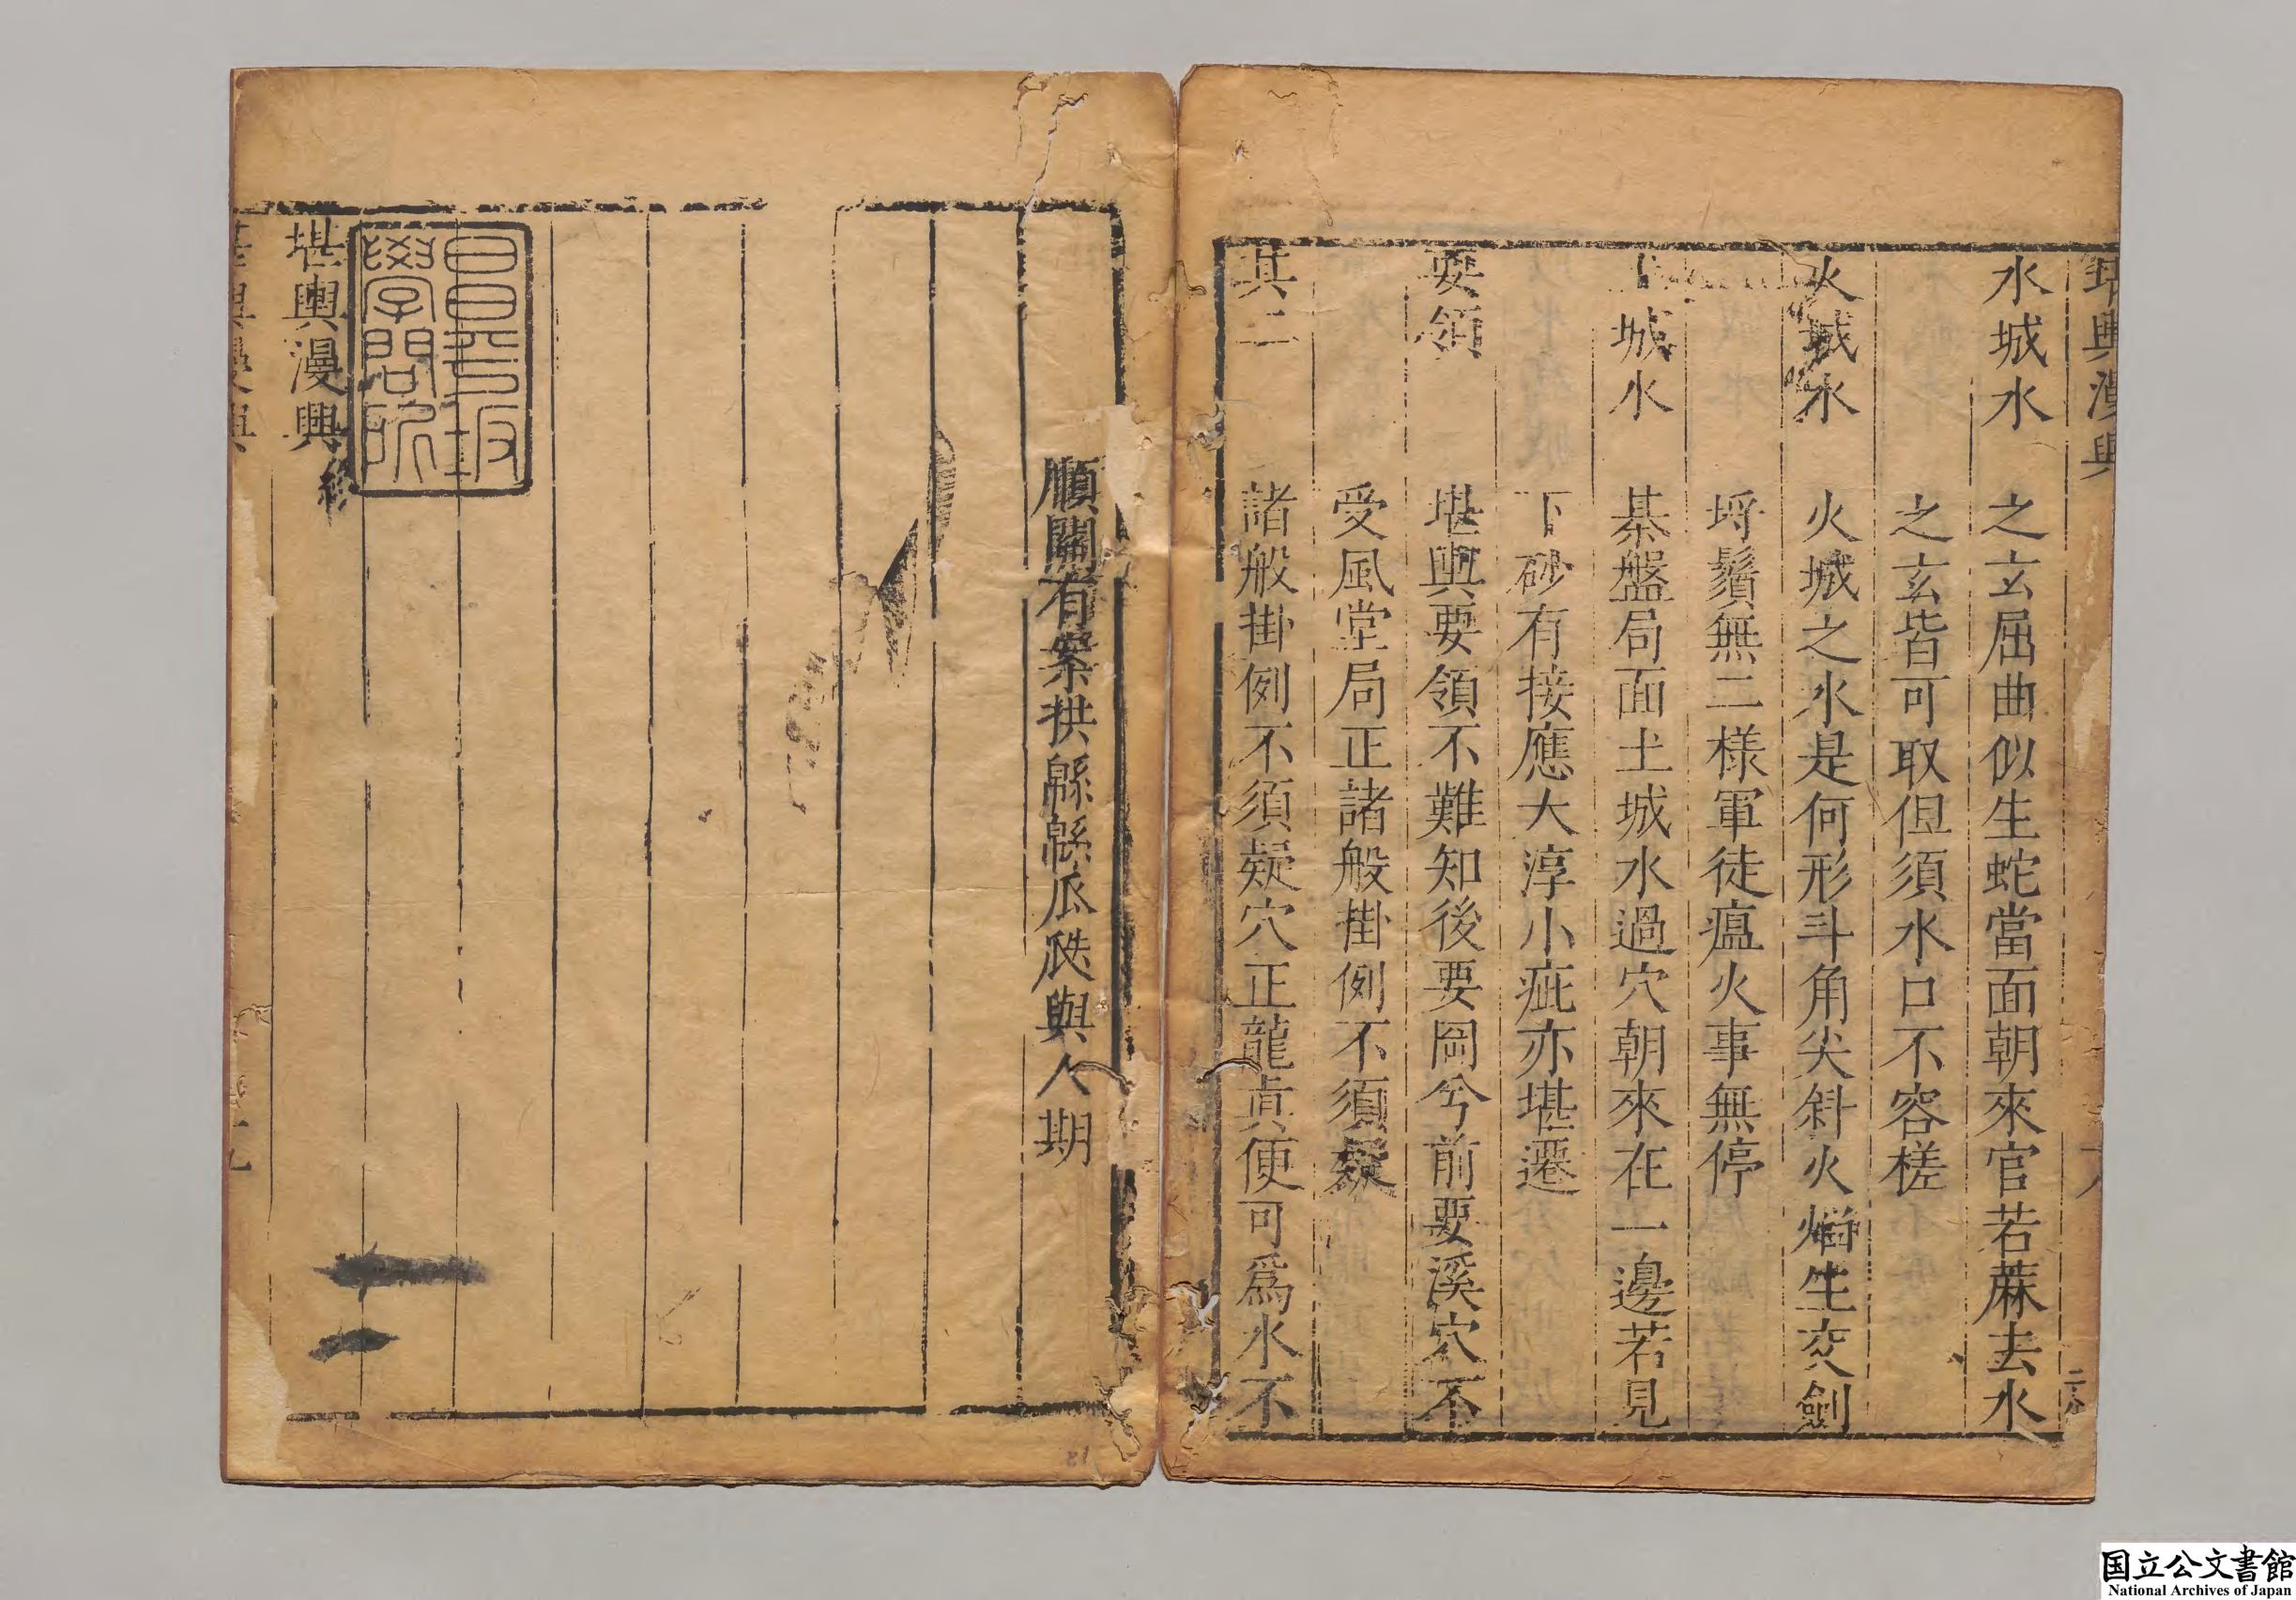 堪輿漫興
水城水　之玄屈曲似生蛇當面朝來官若蔴去水
之玄皆可取但須水口不容槎
火城水　火城之水是何形斗角尖斜火熖生交劍
埒鬚無二樣軍徒瘟火事無停
土城水　棊盤局面土城水過穴朝來在一邊若見
下砂有接應大淳小疵亦堪遷
要領　堪輿要領不難知後要岡兮前要溪穴不
受風堂局正諸般掛例不須疑
其二　諸般掛例不須疑穴正龍眞便可爲水不
順關有案拱緜緜瓜瓞與人期
昌平坂
學問所
堪輿漫興終
堪輿漫興
国立公文書館
National Archives of Japan